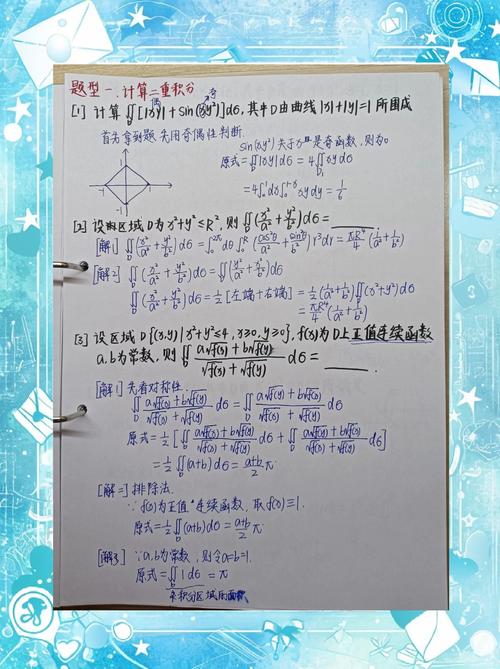 题型一.计算二重积分
偶 奇
[1] 计算∬_D[|xy|+sin(xy²)]dσ,其中D由曲线|x|+|y|=1所围成
首先拿到题先用奇偶性判断.
sin(xy²)关于x是奇函数,则为0
原式=∬_D|xy|dσ=4∬_{D₁}xydσ
=4∫₀¹dx∫₀^{1-x}xydy=1/6
1
-1
1
-1
[2] 设区域D为x²+y²≤R²,则∬_D(x²/a²+y²/b²)dσ=____
[解1] ∬_D(x²/a²+y²/b²)dσ=∫₀^{2π}dθ∫₀^R(cos²θ/a²+sin²θ/b²)r³dr=πR⁴/4(1/a²+1/b²)
[解2] ∬_D(x²/a²+y²/b²)dσ=∬_D(y²/a²+x²/b²)dσ
∬_D(x²/a²+y²/b²)dσ=1/2[左端+右端]=1/2(1/a²+1/b²)∬_D(x²+y²)dσ
=πR⁴/4(1/a²+1/b²)
[3] 设区域D{(x,y)|x²+y²≤4,x≥0,y≥0},f(x)为D上正值连续函数
a,b为常数,则∬_D (a√f(x)+b√f(y))/(√f(x)+√f(y)) dσ=____.
[解1] 先看对称性.
∬_D (a√f(x)+b√f(y))/(√f(x)+√f(y)) dσ=∬_D (a√f(y)+b√f(x))/(√f(x)+√f(y)) dσ
原式=1/2[∬_D (a√f(x)+b√f(y))/(√f(x)+√f(y)) dσ+∬_D (a√f(y)+b√f(x))/(√f(x)+√f(y)) dσ]
=1/2∬_D(a+b)dσ=(a+b)/2 π
[解二] 排除法.
∵f(x)为正值连续函数,取f(x)≡1.
原式=1/2∬_D(a+b)dσ=(a+b)/2 π
[解3] ∵a,b为常数,则令a=b=1.
原式=∬_D 1dσ=π
求积分区域的面积